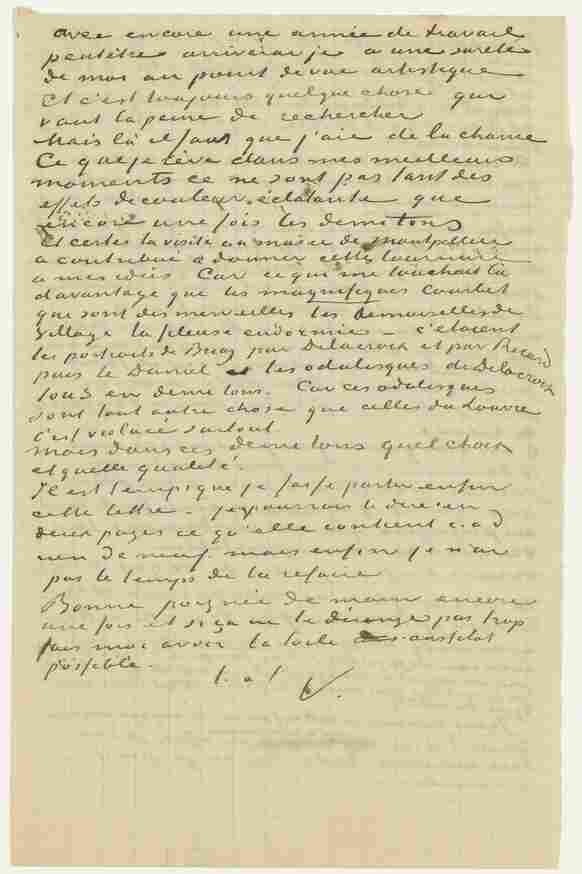 avec encore une année de travail
peutêtre arriverai je à une sureté
de moi au point de vue artistique
Et c'est toujours quelque chose qui
vaut la peine de rechercher
Mais là il faut que j'aie de la chance
Ce que je rêve dans mes meilleurs
moments ce ne sont pas tant des
effets de couleur éclatante que
encore une fois les demitons
Et certes la visite au musée de Montpellier
a contribué à donner cette tournure
à mes idées Car ce qui me touchait là
davantage que les magnifiques Courbet
qui sont des merveilles les demoiselles de
village la fileuse endormie – c'étaient
les portraits de Bruyas par Delacroix et par Ricard
puis le Daniel et les odalisques de Delacroix
tous en demi tons. Car ces odalisques
sont tout autre chose que celles du Louvre
C'est violacé surtout
mais dans ces demi tons quel choix
et quelle qualité.
Il est temps que je fasse partir enfin
cette lettre – je pourrais te dire en
deux pages ce qu'elle contient c.à.d
rien de neuf. mais enfin je n'ai
pas le temps de la refaire
Bonne poignée de main encore
une fois et si ça ne te dérange pas trop
fais moi avoir la toile aussitôt
possible.
t. à t.
V.